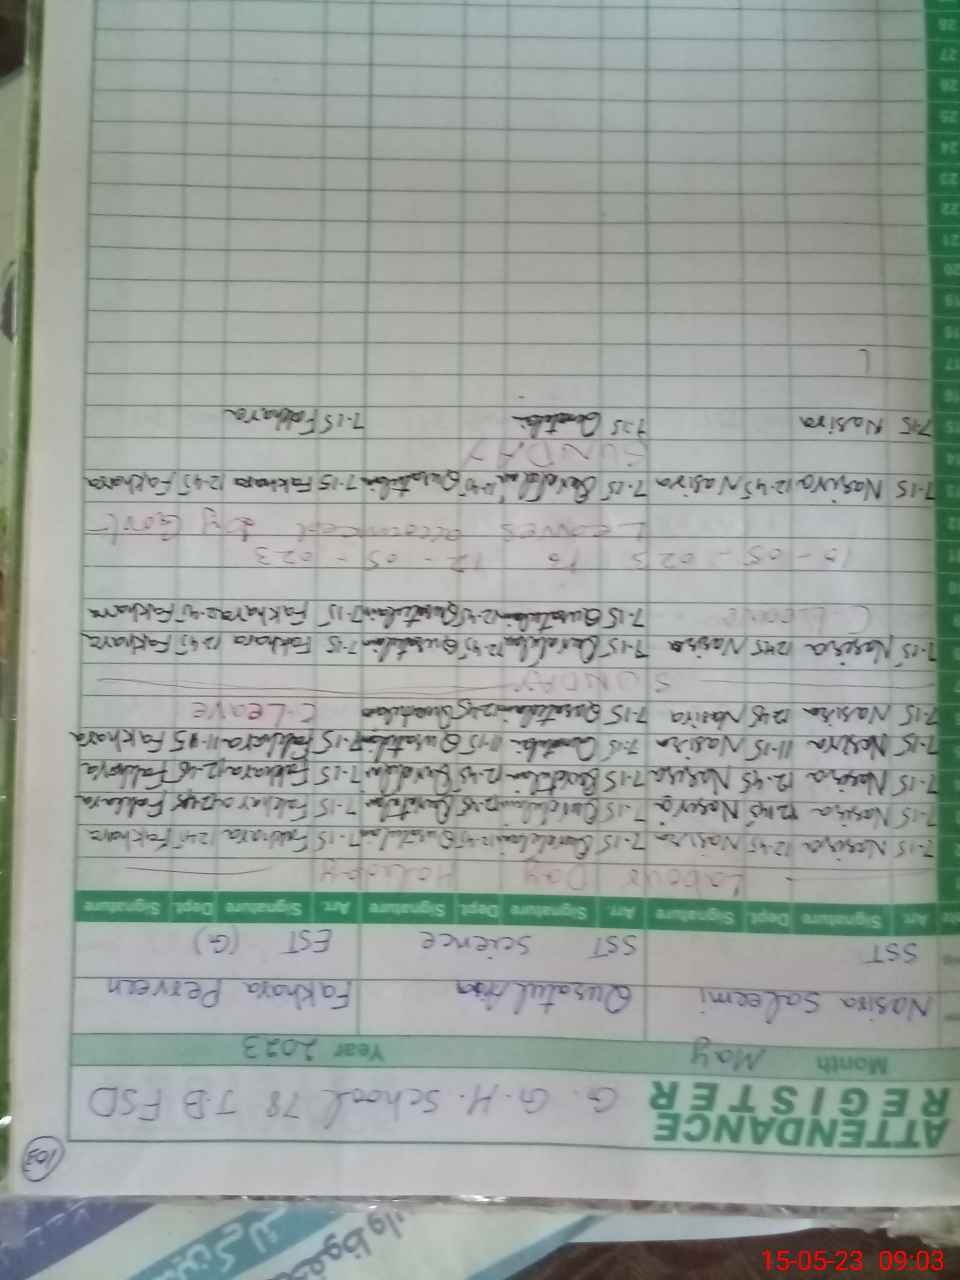 103
ATTENDANCE REGISTER G. G.H. School 78 J.B FSD
Month May Year 2023
Nasira Saleemi Quratul Ain Fakhara Perveen
SST SST Science EST (G)
Arr. Signature Dept. Signature Arr. Signature Dept. Signature Arr. Signature Dept. Signature
Labour Day Holiday
7-15 Nasira 12-45 Nasira 7-15 Quratulain 12-45 Quratulain 7-15 Fakhara 12-45 Fakhara
7-15 Nasira 12-45 Nasira 7-15 Quratulain 12-45 Quratulain 7-15 Fakhara 12-45 Fakhara
7-15 Nasira 12-45 Nasira 7-15 Quratulain 12-45 Quratulain 7-15 Fakhara 12-45 Fakhara
7-15 Nasira 11-15 Nasira 7-15 11-15 Quratulain 7-15 Fakhara 11-15 Fakhara
7-15 Nasira 12-45 Nasira 7-15 Quratulain 12-45 Quratulain C-Leave
SUNDAY
7-15 Nasira 12-45 Nasira 7-15 Quratulain 12-45 Quratulain 7-15 Fakhara 12-45 Fakhara
C-Leave 7-15 Quratulain 12-45 Quratulain 7-15 Fakhara 12-45 Fakhara
10-05-023 To 12-05-023
Leaves announced by Govt
7-15 Nasira 12-45 Nasira 7-15 Quratulain 12-45 Quratulain 7-15 Fakhara 12-45 Fakhara
SUNDAY
7-15 Nasira 7-15 7-15 Fakhara
17
18
19
20
21
22
23
24
25
26
27
28
15-05-23 09:03